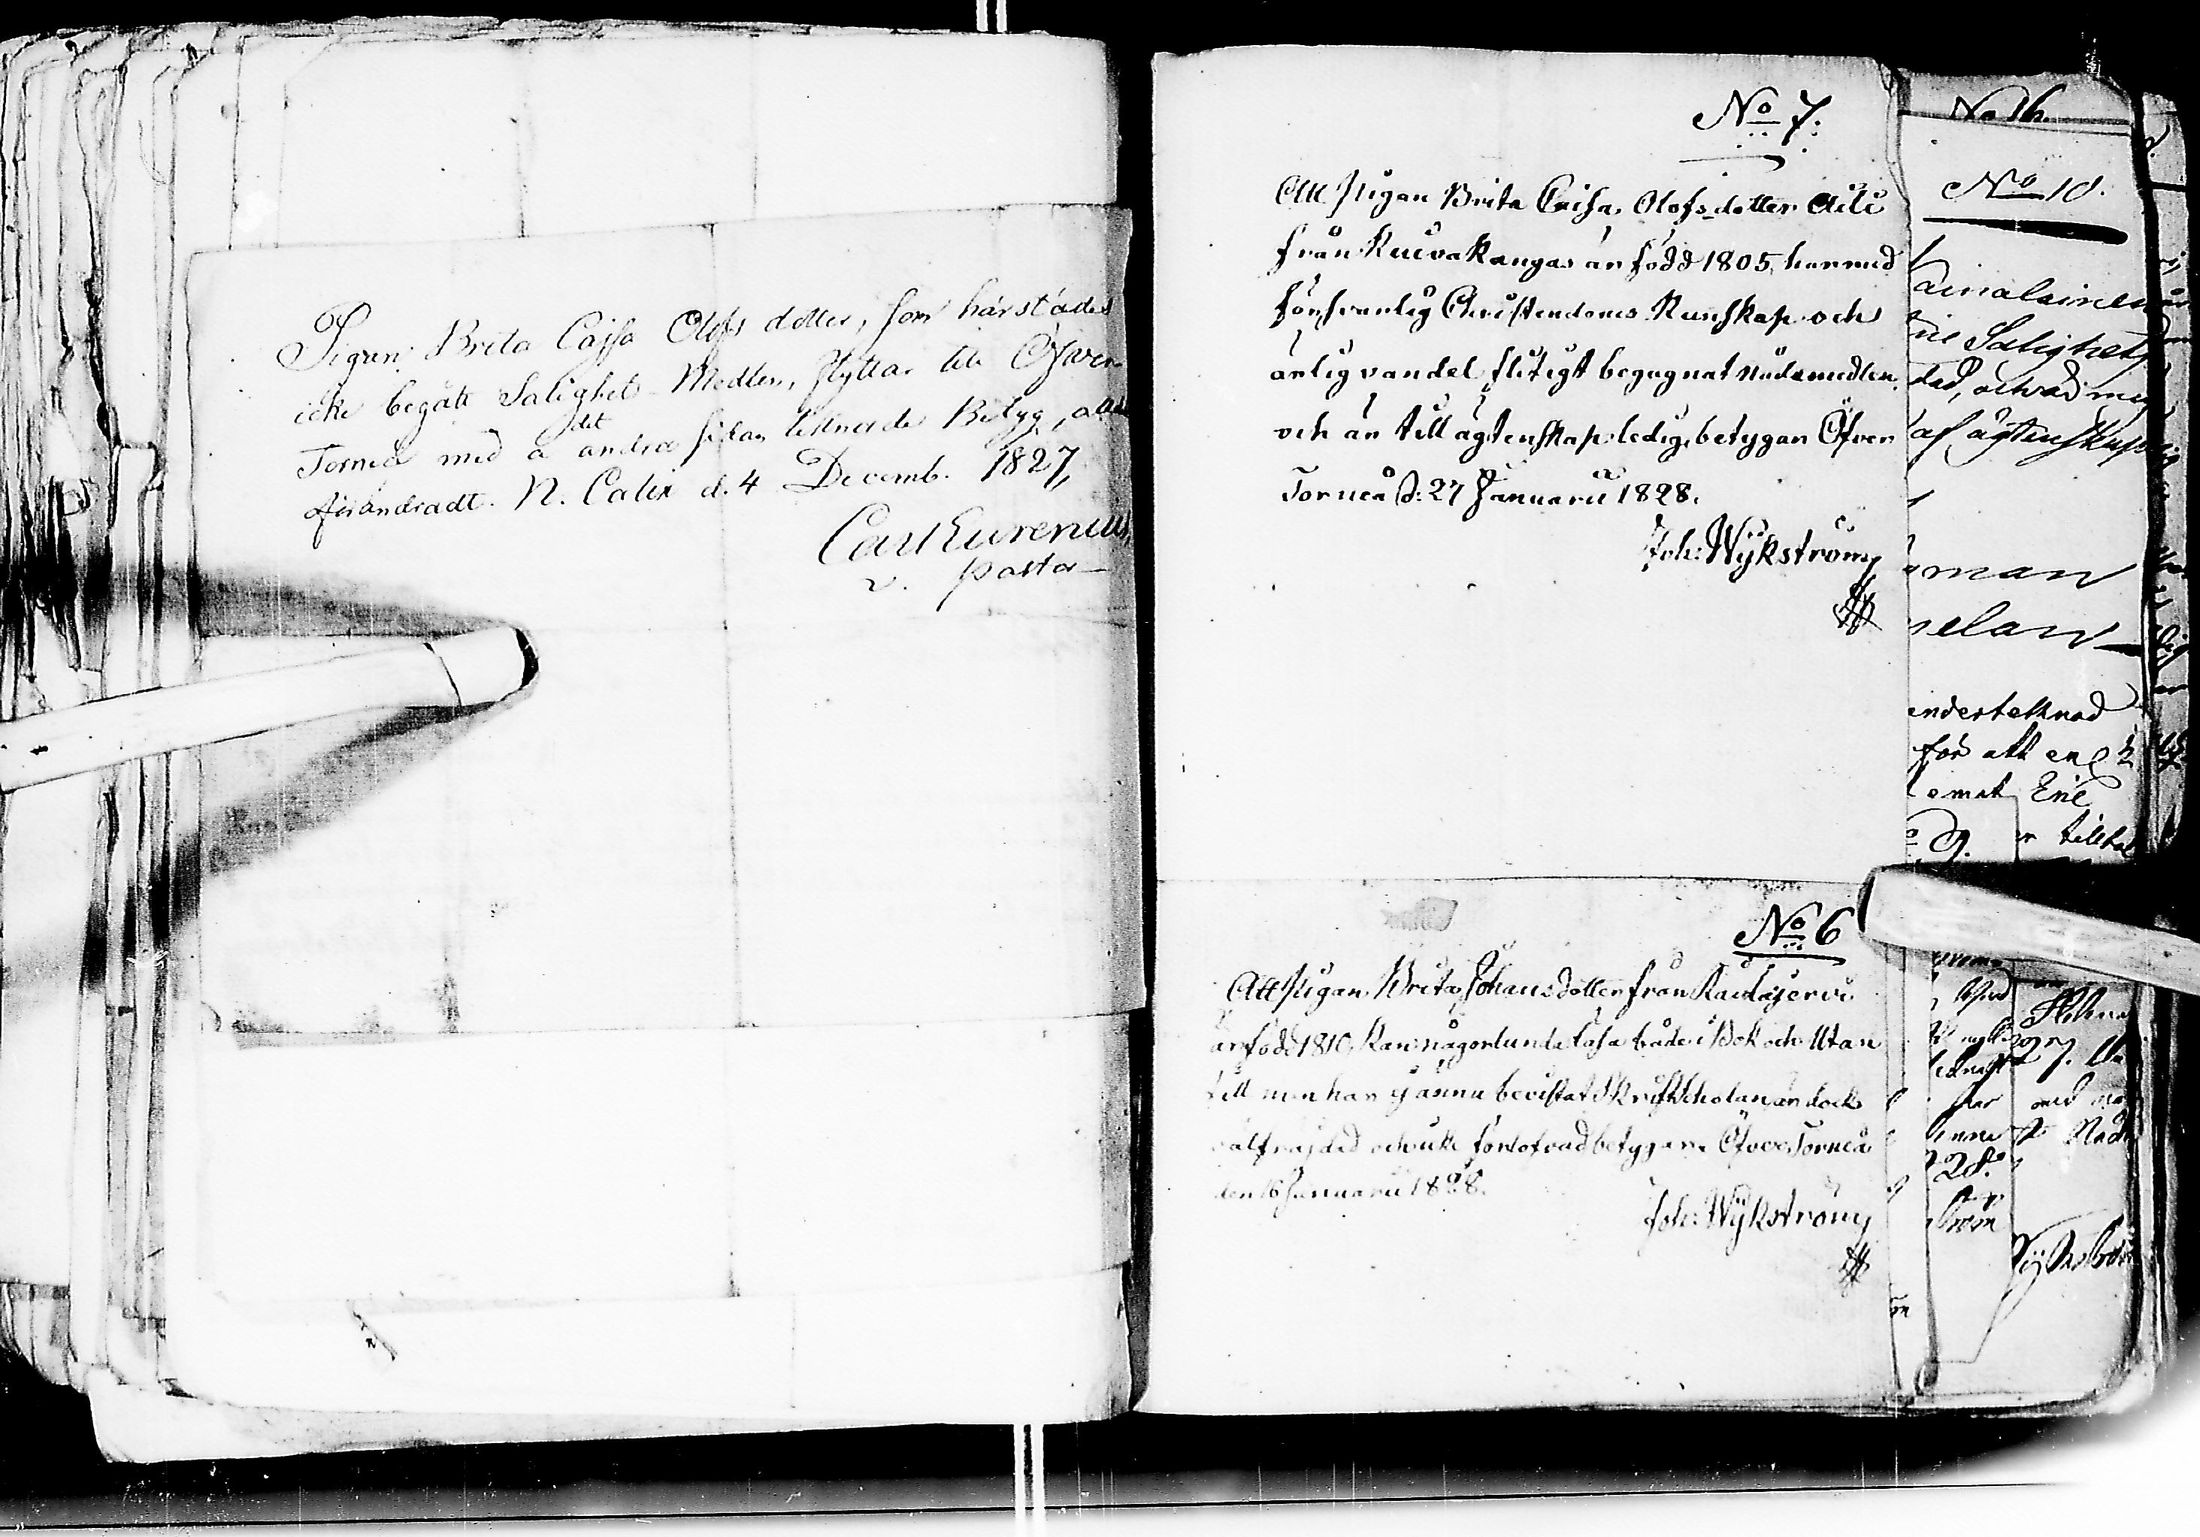 Pigan Brita Cajsa Olofs dotter, som härstädes
icke begått Salighets Medlen, flyttar till Öfwer
Torneå med det å andra sidan tecknade Betyg,
oförändradt. N. Calix d. 4 Decemb. 1827,
Carl Eurenius,
v. Pastor
No 7.
Att Pigan Brita Caisa Olofsdotter Aili
från Kuivakangas är född 1805, har med
försvarlig Christendoms Kunskap och
ärlig vandel flitigt begagnat nådemedlen
och är till ägtenskap ledig, betygar Öfver
Torneå d: 27 Januarii 1828.
Joh: Wÿkström
No 6
Att Pigan Brita Johansdotter från Raidajervi
är född 1810, kan någorlunda läsa både i Bok och Utan
till men har ej ännu bevistat Skriftskolan är dock
välfräjdad och icke förlofvad betygar. Öfver Torneå
den 16 Januarii 1828.
Joh: Wÿkström
No 16.
No 10.
ainalainen
Salighets
af ägtenskap
man
elan
undertecknad
för att en
emot Eric
tillhal
28.
ström